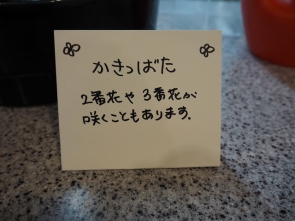 かきつばた
2番花や3番花が
咲くこともあります。